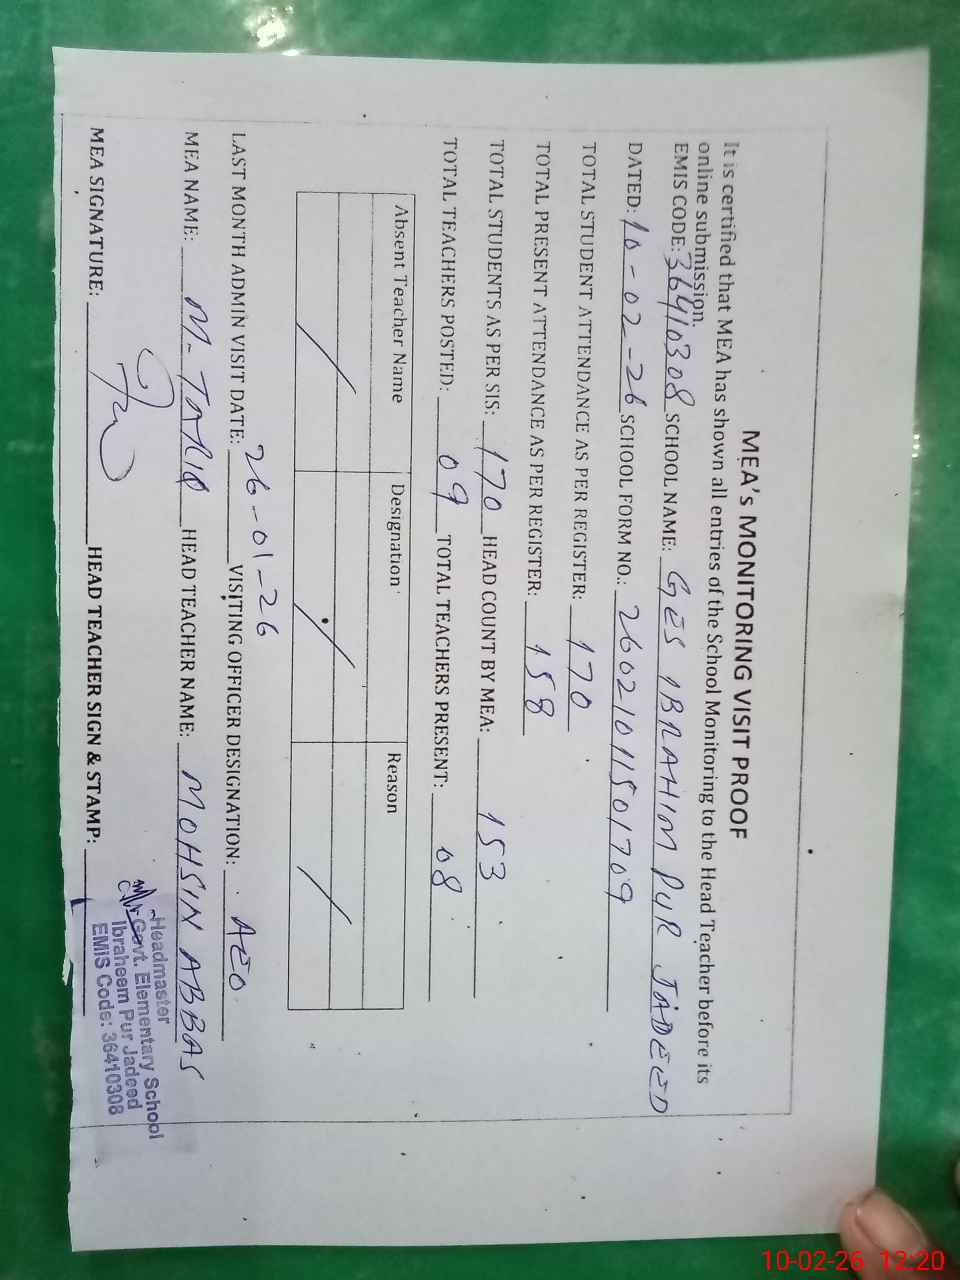 MEA's MONITORING VISIT PROOF
It is certified that MEA has shown all entries of the School Monitoring to the Head Teacher before its
online submission.
EMIS CODE: 36410308 SCHOOL NAME: GES IBRAHIM PUR JADEED
DATED: 10-02-26 SCHOOL FORM NO.: 2602101501709
TOTAL STUDENT ATTENDANCE AS PER REGISTER: 170
TOTAL PRESENT ATTENDANCE AS PER REGISTER: 158
TOTAL STUDENTS AS PER SIS: 170 HEAD COUNT BY MEA: 153
TOTAL TEACHERS POSTED: 09 TOTAL TEACHERS PRESENT: 08
Absent Teacher Name Designation Reason
LAST MONTH ADMIN VISIT DATE: 26-01-26 VISITING OFFICER DESIGNATION: AEO
MEA NAME: M. TARIQ HEAD TEACHER NAME: MOHSIN ABBAS
MEA SIGNATURE: HEAD TEACHER SIGN & STAMP:
Headmaster
Govt. Elementary School
Ibraheem Pur Jadeed
EMIS Code: 36410308
10-02-26 12:20